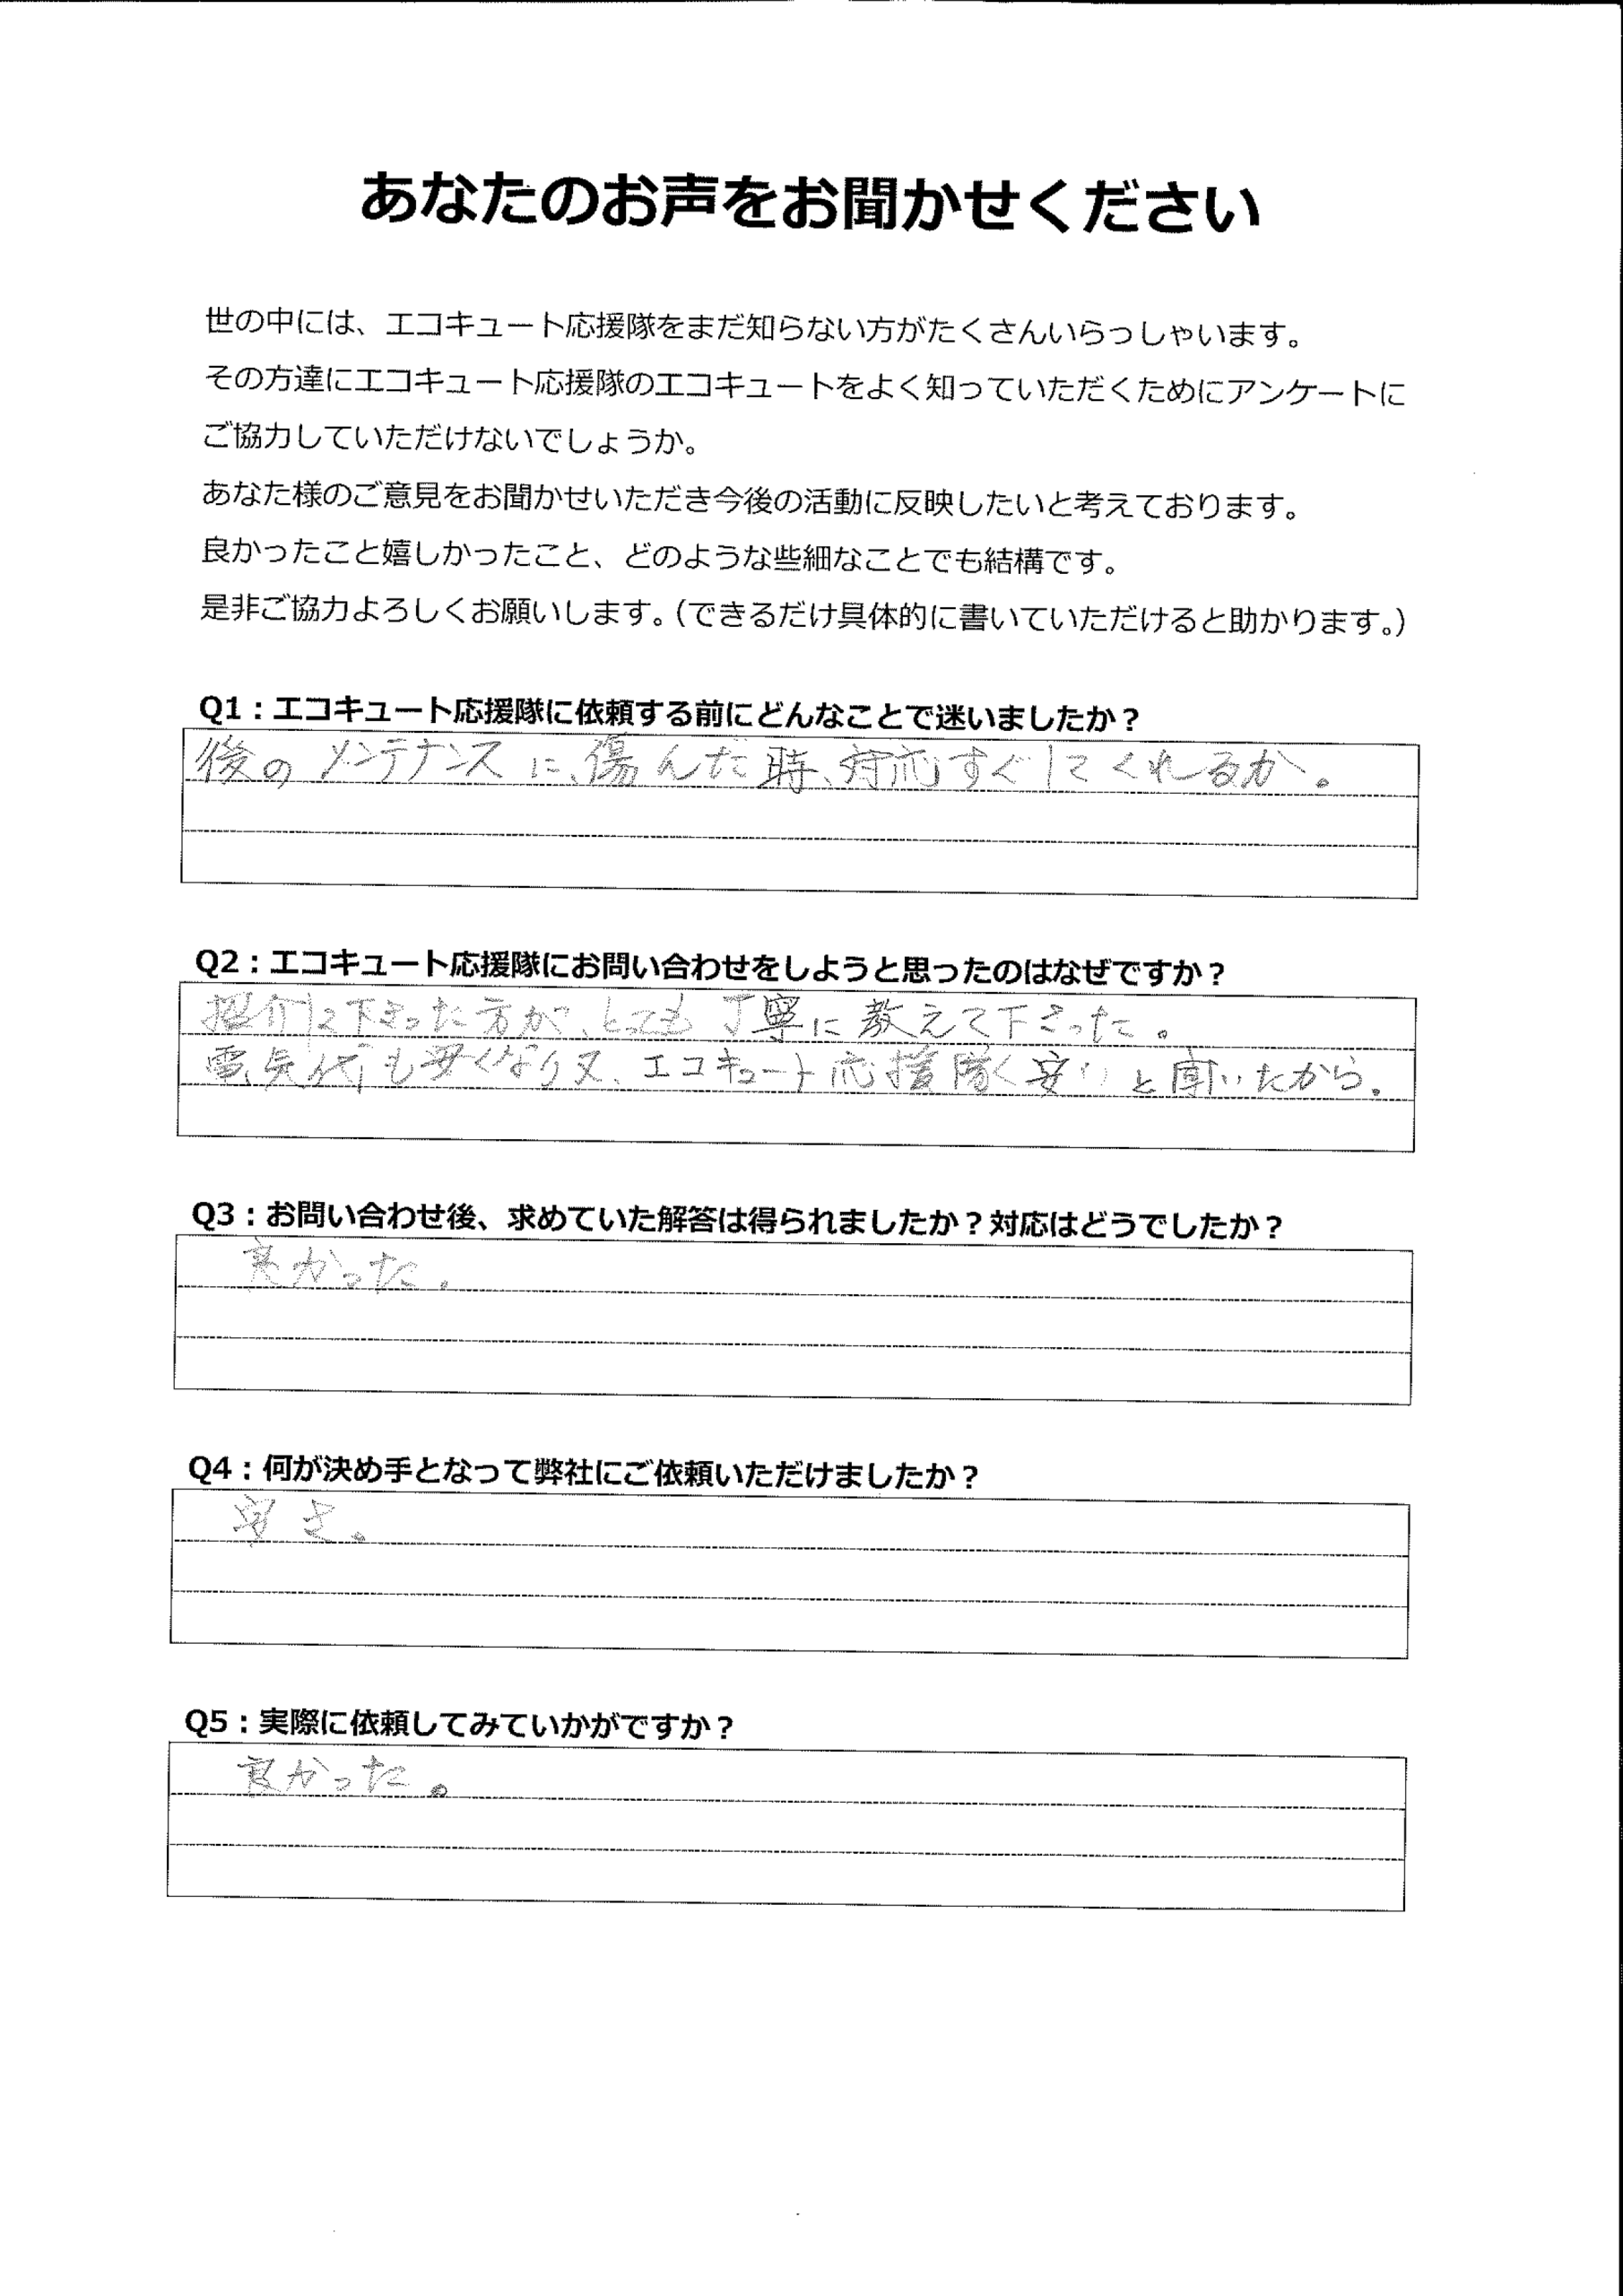 あなたのお声をお聞かせください
世の中には、エコキュート応援隊をまだ知らない方がたくさんいらっしゃいます。
その方達にエコキュート応援隊のエコキュートをよく知っていただくためにアンケートに
ご協力していただけないでしょうか。
あなた様のご意見をお聞かせいただき今後の活動に反映したいと考えております。
良かったこと嬉しかったこと、どのような些細なことでも結構です。
是非ご協力よろしくお願いします。（できるだけ具体的に書いていただけると助かります。）
Q1：エコキュート応援隊に依頼する前にどんなことで迷いましたか？
後のメンテナンスに、傷んだ時、対応すぐしてくれるか。
Q2：エコキュート応援隊にお問い合わせをしようと思ったのはなぜですか？
紹介して下さった方が、とっても丁寧に教えて下さった。
電気代も安くなり又、エコキュート応援隊く安いと聞いたから。
Q3：お問い合わせ後、求めていた解答は得られましたか？対応はどうでしたか？
良かった。
Q4：何が決め手となって弊社にご依頼いただけましたか？
安さ。
Q5：実際に依頼してみていかがですか？
良かった。